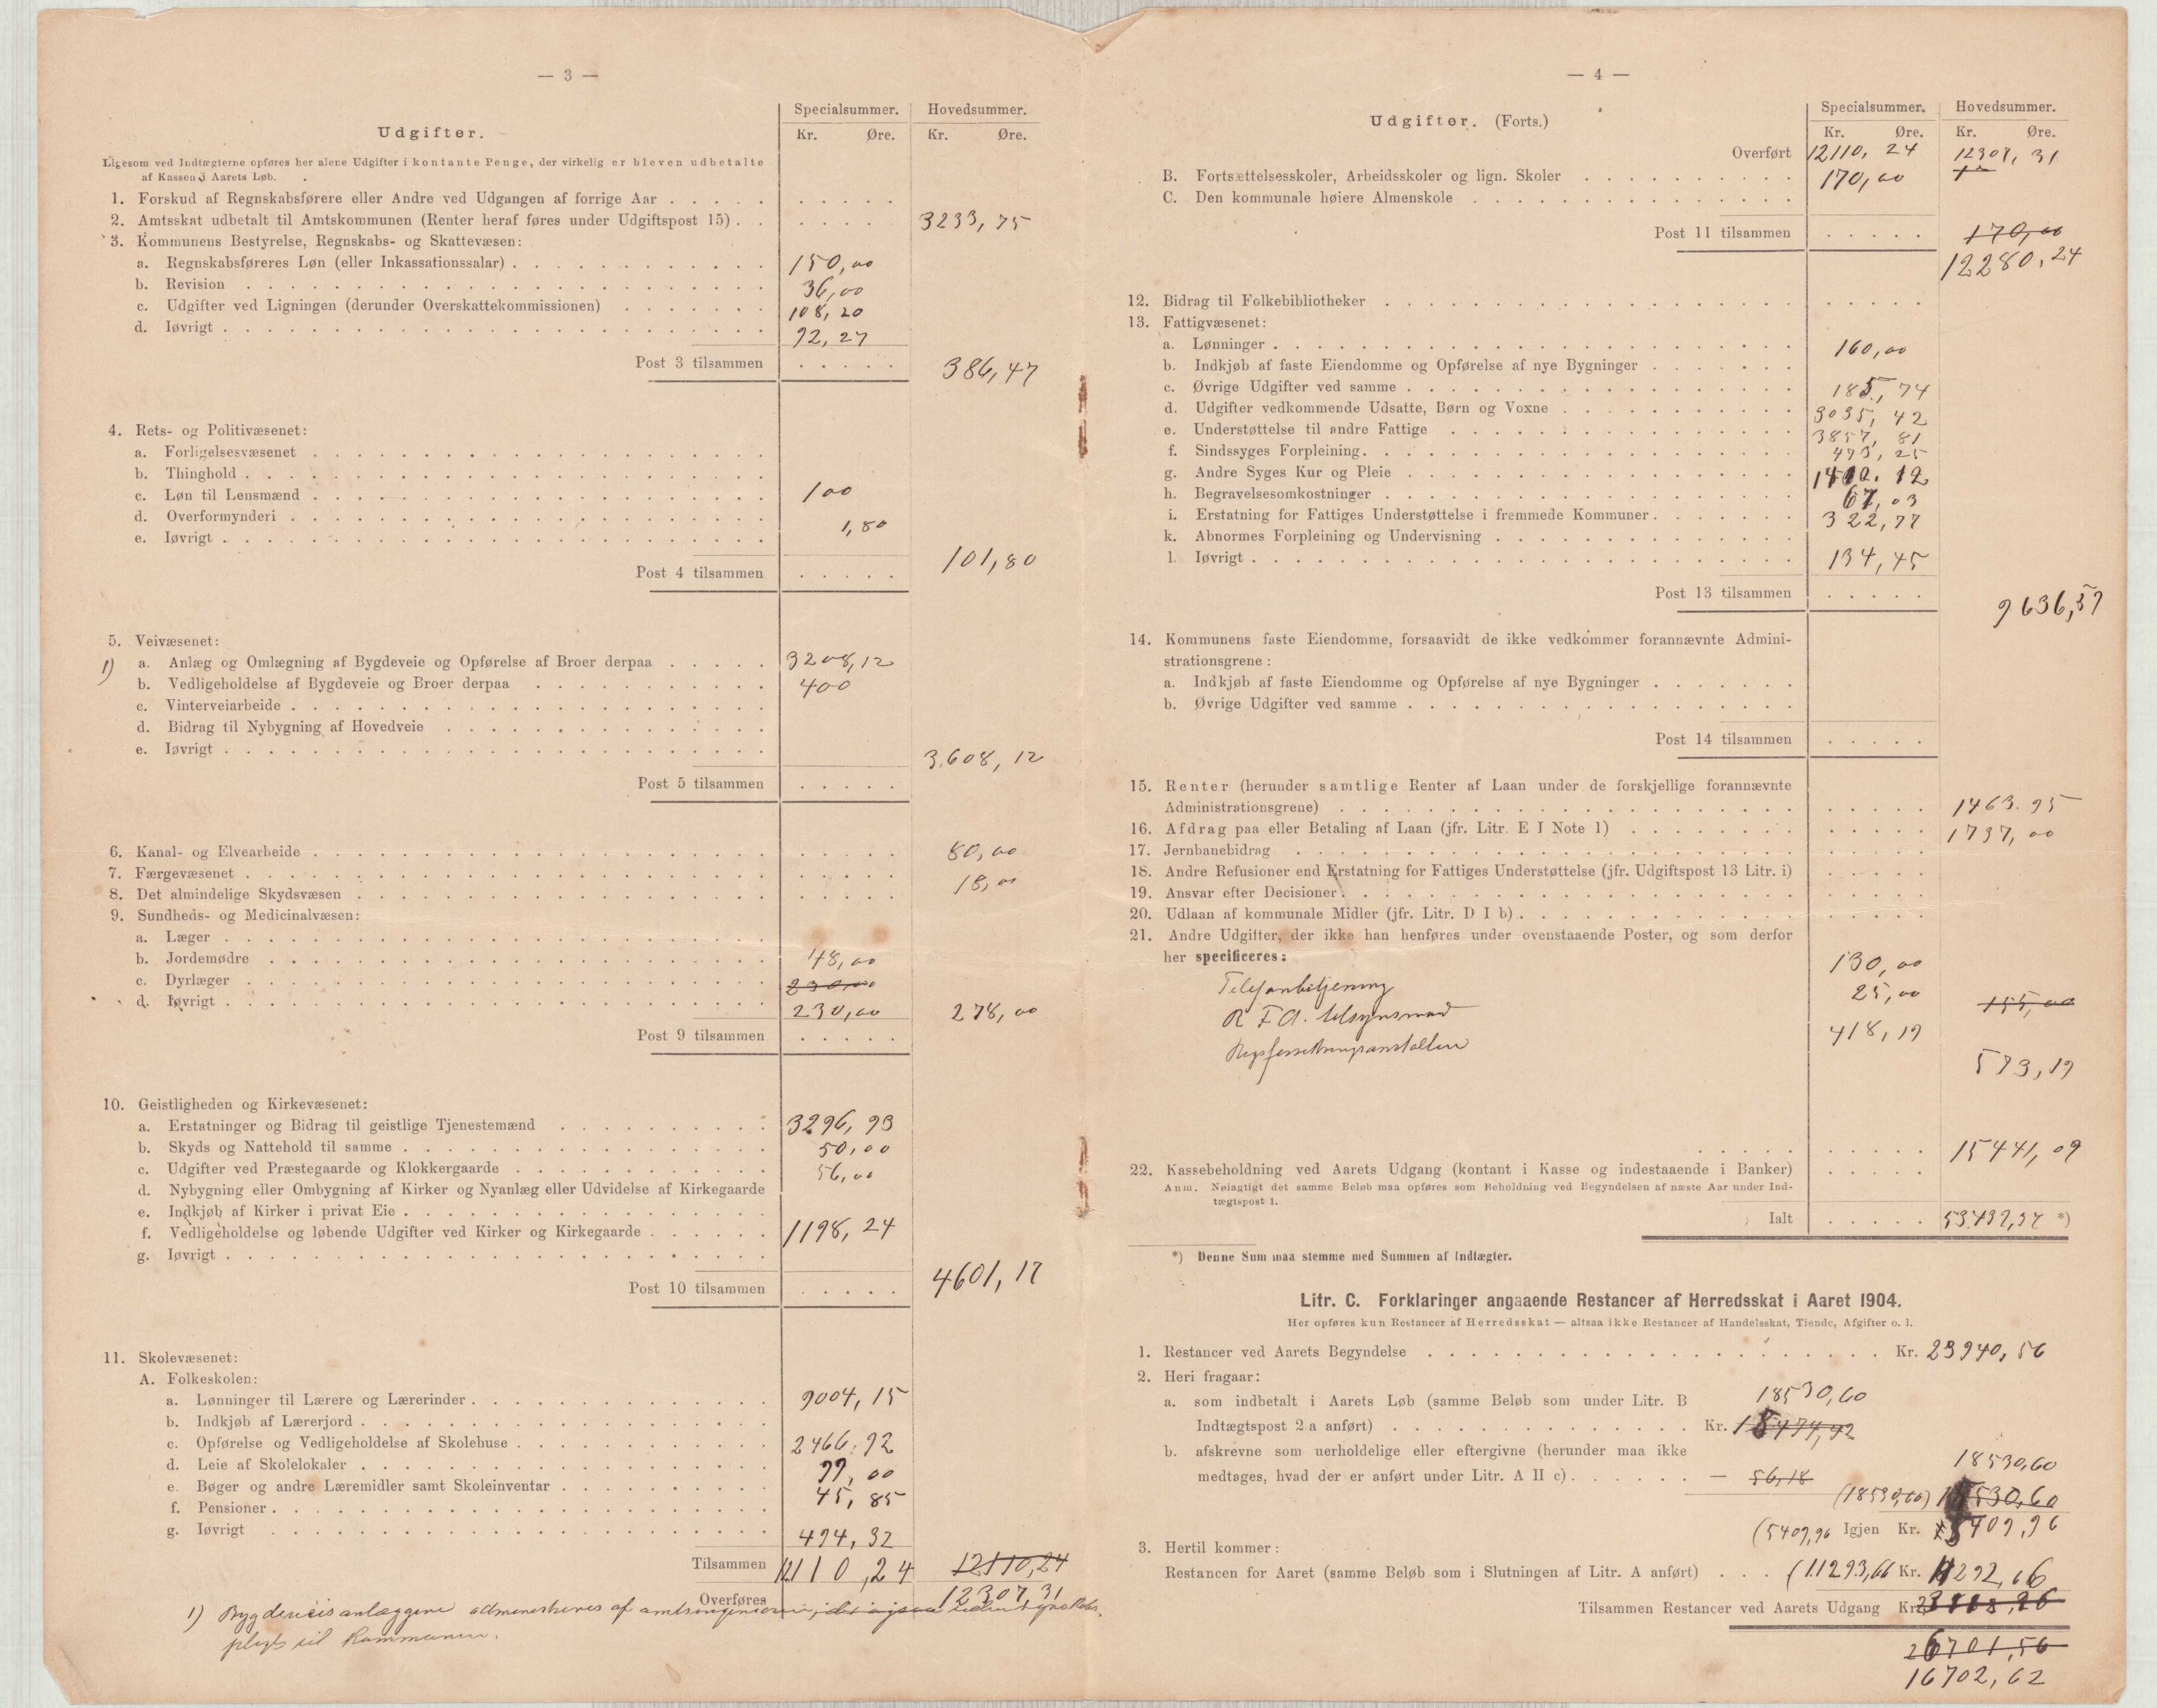 — 3 —
Udgifter.
Specialsummer. Hovedsummer.
Kr. Øre. Kr. Øre.
Ligesom ved Indtægterne opføres her alene Udgifter i kontante Penge, der virkelig er bleven udbetalte
af Kassen i Aarets Løb.
1. Forskud af Regnskabsførere eller Andre ved Udgangen af forrige Aar
2. Amtsskat udbetalt til Amtskommunen (Renter heraf føres under Udgiftspost 15) 3233,75
3. Kommunens Bestyrelse, Regnskabs- og Skattevæsen:
a. Regnskabsføreres Løn (eller Inkassationssalar) 150,00
b. Revision 36,00
c. Udgifter ved Ligningen (derunder Overskattekommissionen) 108,20
d. Iøvrigt 92,27
Post 3 tilsammen 386,47
4. Rets- og Politivæsenet:
a. Forligelsesvæsenet
b. Thinghold
c. Løn til Lensmænd 100
d. Overformynderi 1,80
e. Iøvrigt
Post 4 tilsammen 101,80
5. Veivæsenet:
1) a. Anlæg og Omlægning af Bygdeveie og Opførelse af Broer derpaa 3208,12
b. Vedligeholdelse af Bygdeveie og Broer derpaa 400
c. Vinterveiarbeide
d. Bidrag til Nybygning af Hovedveie
e. Iøvrigt
Post 5 tilsammen 3.608,12
6. Kanal- og Elvearbeide 80,00
7. Færgevæsenet 18,00
8. Det almindelige Skydsvæsen
9. Sundheds- og Medicinalvæsen:
a. Læger
b. Jordemødre 48,00
c. Dyrlæger 230,00
d. Iøvrigt 230,00 278,00
Post 9 tilsammen
10. Geistligheden og Kirkevæsenet:
a. Erstatninger og Bidrag til geistlige Tjenestemænd 3296,93
b. Skyds og Nattehold til samme 50,00
c. Udgifter ved Præstegaarde og Klokkergaarde 56,00
d. Nybygning eller Ombygning af Kirker og Nyanlæg eller Udvidelse af Kirkegaarde
e. Indkjøb af Kirker i privat Eie
f. Vedligeholdelse og løbende Udgifter ved Kirker og Kirkegaarde 1198,24
g. Iøvrigt
Post 10 tilsammen 4601,17
11. Skolevæsenet:
A. Folkeskolen:
a. Lønninger til Lærere og Lærerinder 9004,15
b. Indkjøb af Lærerjord
c. Opførelse og Vedligeholdelse af Skolehuse 2466,92
d. Leie af Skolelokaler 99,00
e. Bøger og andre Læremidler samt Skoleinventar 45,85
f. Pensioner
g. Iøvrigt 494,32
Tilsammen 12110,24 12110,24
Overføres 12307,31
1) Bygdeveisanlæggene administreres af amtsingeniøren,
pligt til Kommunen.
— 4 —
Udgifter. (Forts.)
Specialsummer. Hovedsummer.
Kr. Øre. Kr. Øre.
Overført 12110,24 12307,31
B. Fortsættelsesskoler, Arbeidsskoler og lign. Skoler 170,00
C. Den kommunale høiere Almenskole
Post 11 tilsammen 170,00
12280,24
12. Bidrag til Folkebibliotheker
13. Fattigvæsenet:
a. Lønninger 160,00
b. Indkjøb af faste Eiendomme og Opførelse af nye Bygninger
c. Øvrige Udgifter ved samme 185,74
d. Udgifter vedkommende Udsatte, Børn og Voxne 3035,42
e. Understøttelse til andre Fattige 3857,81
f. Sindssyges Forpleining 473,25
g. Andre Syges Kur og Pleie 1400.12
h. Begravelsesomkostninger 67,03
i. Erstatning for Fattiges Understøttelse i fremmede Kommuner 322,77
k. Abnormes Forpleining og Undervisning
l. Iøvrigt 134,45
Post 13 tilsammen 9636,59
14. Kommunens faste Eiendomme, forsaavidt de ikke vedkommer forannævnte Admini-
strationsgrene:
a. Indkjøb af faste Eiendomme og Opførelse af nye Bygninger
b. Øvrige Udgifter ved samme
Post 14 tilsammen
15. Renter (herunder samtlige Renter af Laan under de forskjellige forannævnte
Administrationsgrene) 1463.95
16. Afdrag paa eller Betaling af Laan (jfr. Litr. E I Note 1) 1737,00
17. Jernbanebidrag
18. Andre Refusioner end Erstatning for Fattiges Understøttelse (jfr. Udgiftspost 13 Litr. i)
19. Ansvar efter Decisioner
20. Udlaan af kommunale Midler (jfr. Litr. D I b)
21. Andre Udgifter, der ikke han henføres under ovenstaaende Poster, og som derfor
her specificeres:
Telefonbetjening 130,00
R F A. tilsynsmand 25,00 155,00
Rigsforsikringsanstalten 418,19
573,19
15441,09
22. Kassebeholdning ved Aarets Udgang (kontant i Kasse og indestaaende i Banker)
Anm. Nøiagtigt det samme Beløb maa opføres som Beholdning ved Begyndelsen af næste Aar under Ind-
tægtspost 1.
Ialt 53.439,37 *)
*) Denne Sum maa stemme med Summen af Indtægter.
Litr. C. Forklaringer angaaende Restancer af Herredsskat i Aaret 1904.
Her opføres kun Restancer af Herredsskat — altsaa ikke Restancer af Handelsskat, Tiende, Afgifter o. l.
1. Restancer ved Aarets Begyndelse Kr. 23940,56
2. Heri fragaar:
a. som indbetalt i Aarets Løb (samme Beløb som under Litr. B 18530,60
Indtægtspost 2 a anført) Kr. 18474,42
b. afskrevne som uerholdelige eller eftergivne (herunder maa ikke
medtages, hvad der er anført under Litr. A II c) — 56,18 18530,60
(18530,60) 18530,60
(5409,96 Igjen Kr. 5409,96
3. Hertil kommer:
Restancen for Aaret (samme Beløb som i Slutningen af Litr. A anført) (11293,66 Kr. 11292,66
Tilsammen Restancer ved Aarets Udgang Kr.
26701,56
16702,62